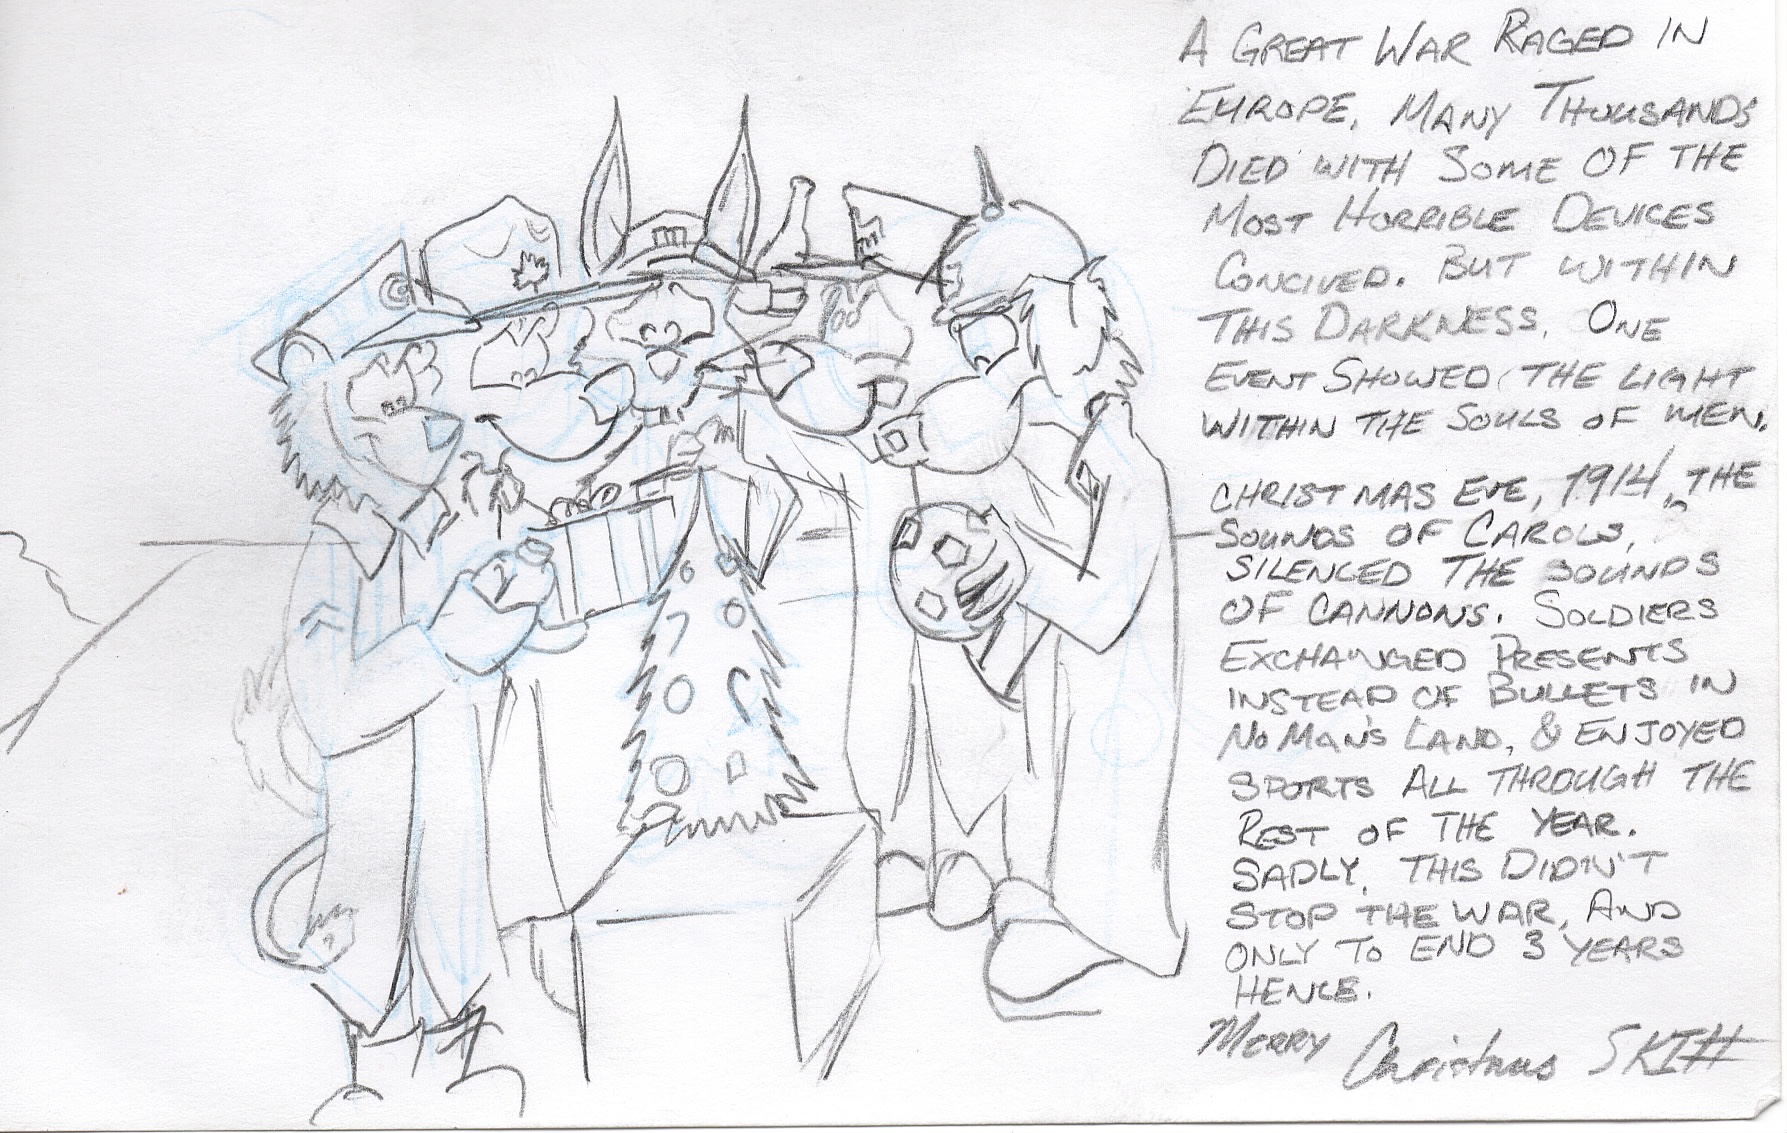 A GREAT WAR RAGED IN
EUROPE. MANY THOUSANDS
DIED WITH SOME OF THE
MOST HORRIBLE DEVICES
CONCIVED. BUT WITHIN
THIS DARKNESS, ONE
EVENT SHOWED THE LIGHT
WITHIN THE SOULS OF MEN.
CHRISTMAS EVE, 1914, THE
SOUNDS OF CAROLS,
SILENCED THE SOUNDS
OF CANNONS. SOLDIERS
EXCHANGED PRESENTS
INSTEAD OF BULLETS IN
NO MAN'S LAND, & ENJOYED
SPORTS ALL THROUGH THE
REST OF THE YEAR.
SADLY, THIS DIDN'T
STOP THE WAR, AND
ONLY TO END 3 YEARS
HENCE.
MERRY Christmas